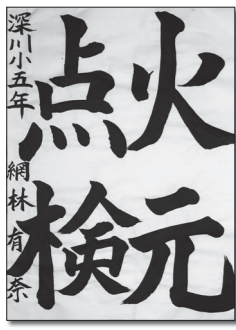 火元
点検
深川小五年 網林有奈